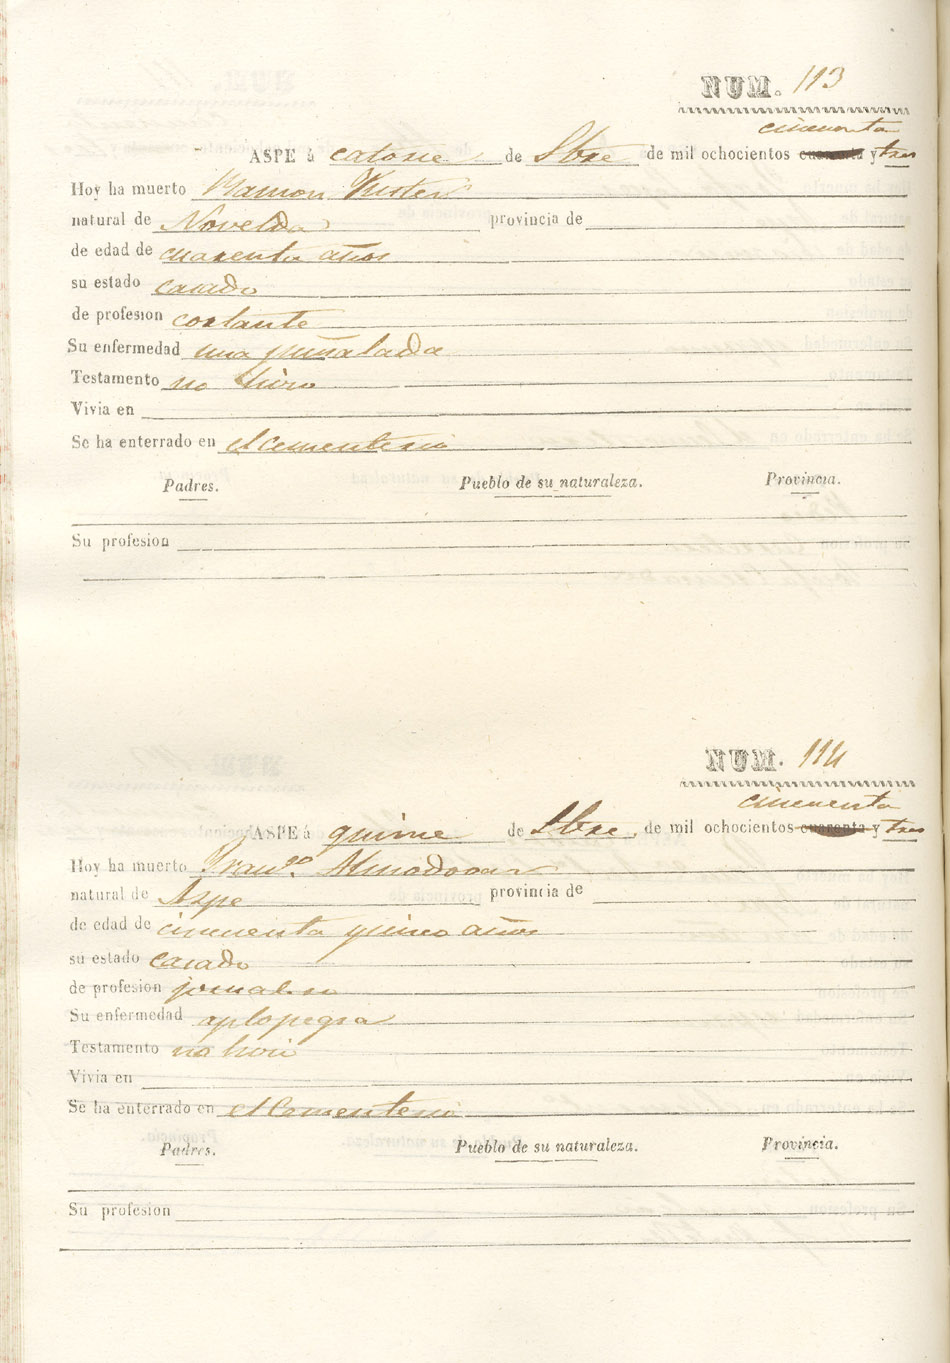 NUM. 113
cincuenta
ASPE á catorse de Sbre de mil ochocientos cuarenta y tres
Hoy ha muerto Ramon
natural de Novelda provincia de
de edad de cuarenta años
su estado casado
de profesion cortante
Su enfermedad una puñalada
Testamento no hiso
Vivia en
Se ha enterrado en el cementerio
Padres. Pueblo de su naturaleza. Provincia.
Su profesion
NUM. 114
cincuenta
ASPE á quinse de Sbre de mil ochocientos cuarenta y tres
Hoy ha muerto Franco. Almodovar
natural de Aspe provincia de
de edad de cincuenta y cinco años
su estado casado
de profesion jornalero
Su enfermedad aplopegia
Testamento no hiso
Vivia en
Se ha enterrado en el Cementerio
Padres. Pueblo de su naturaleza. Provincia.
Su profesion